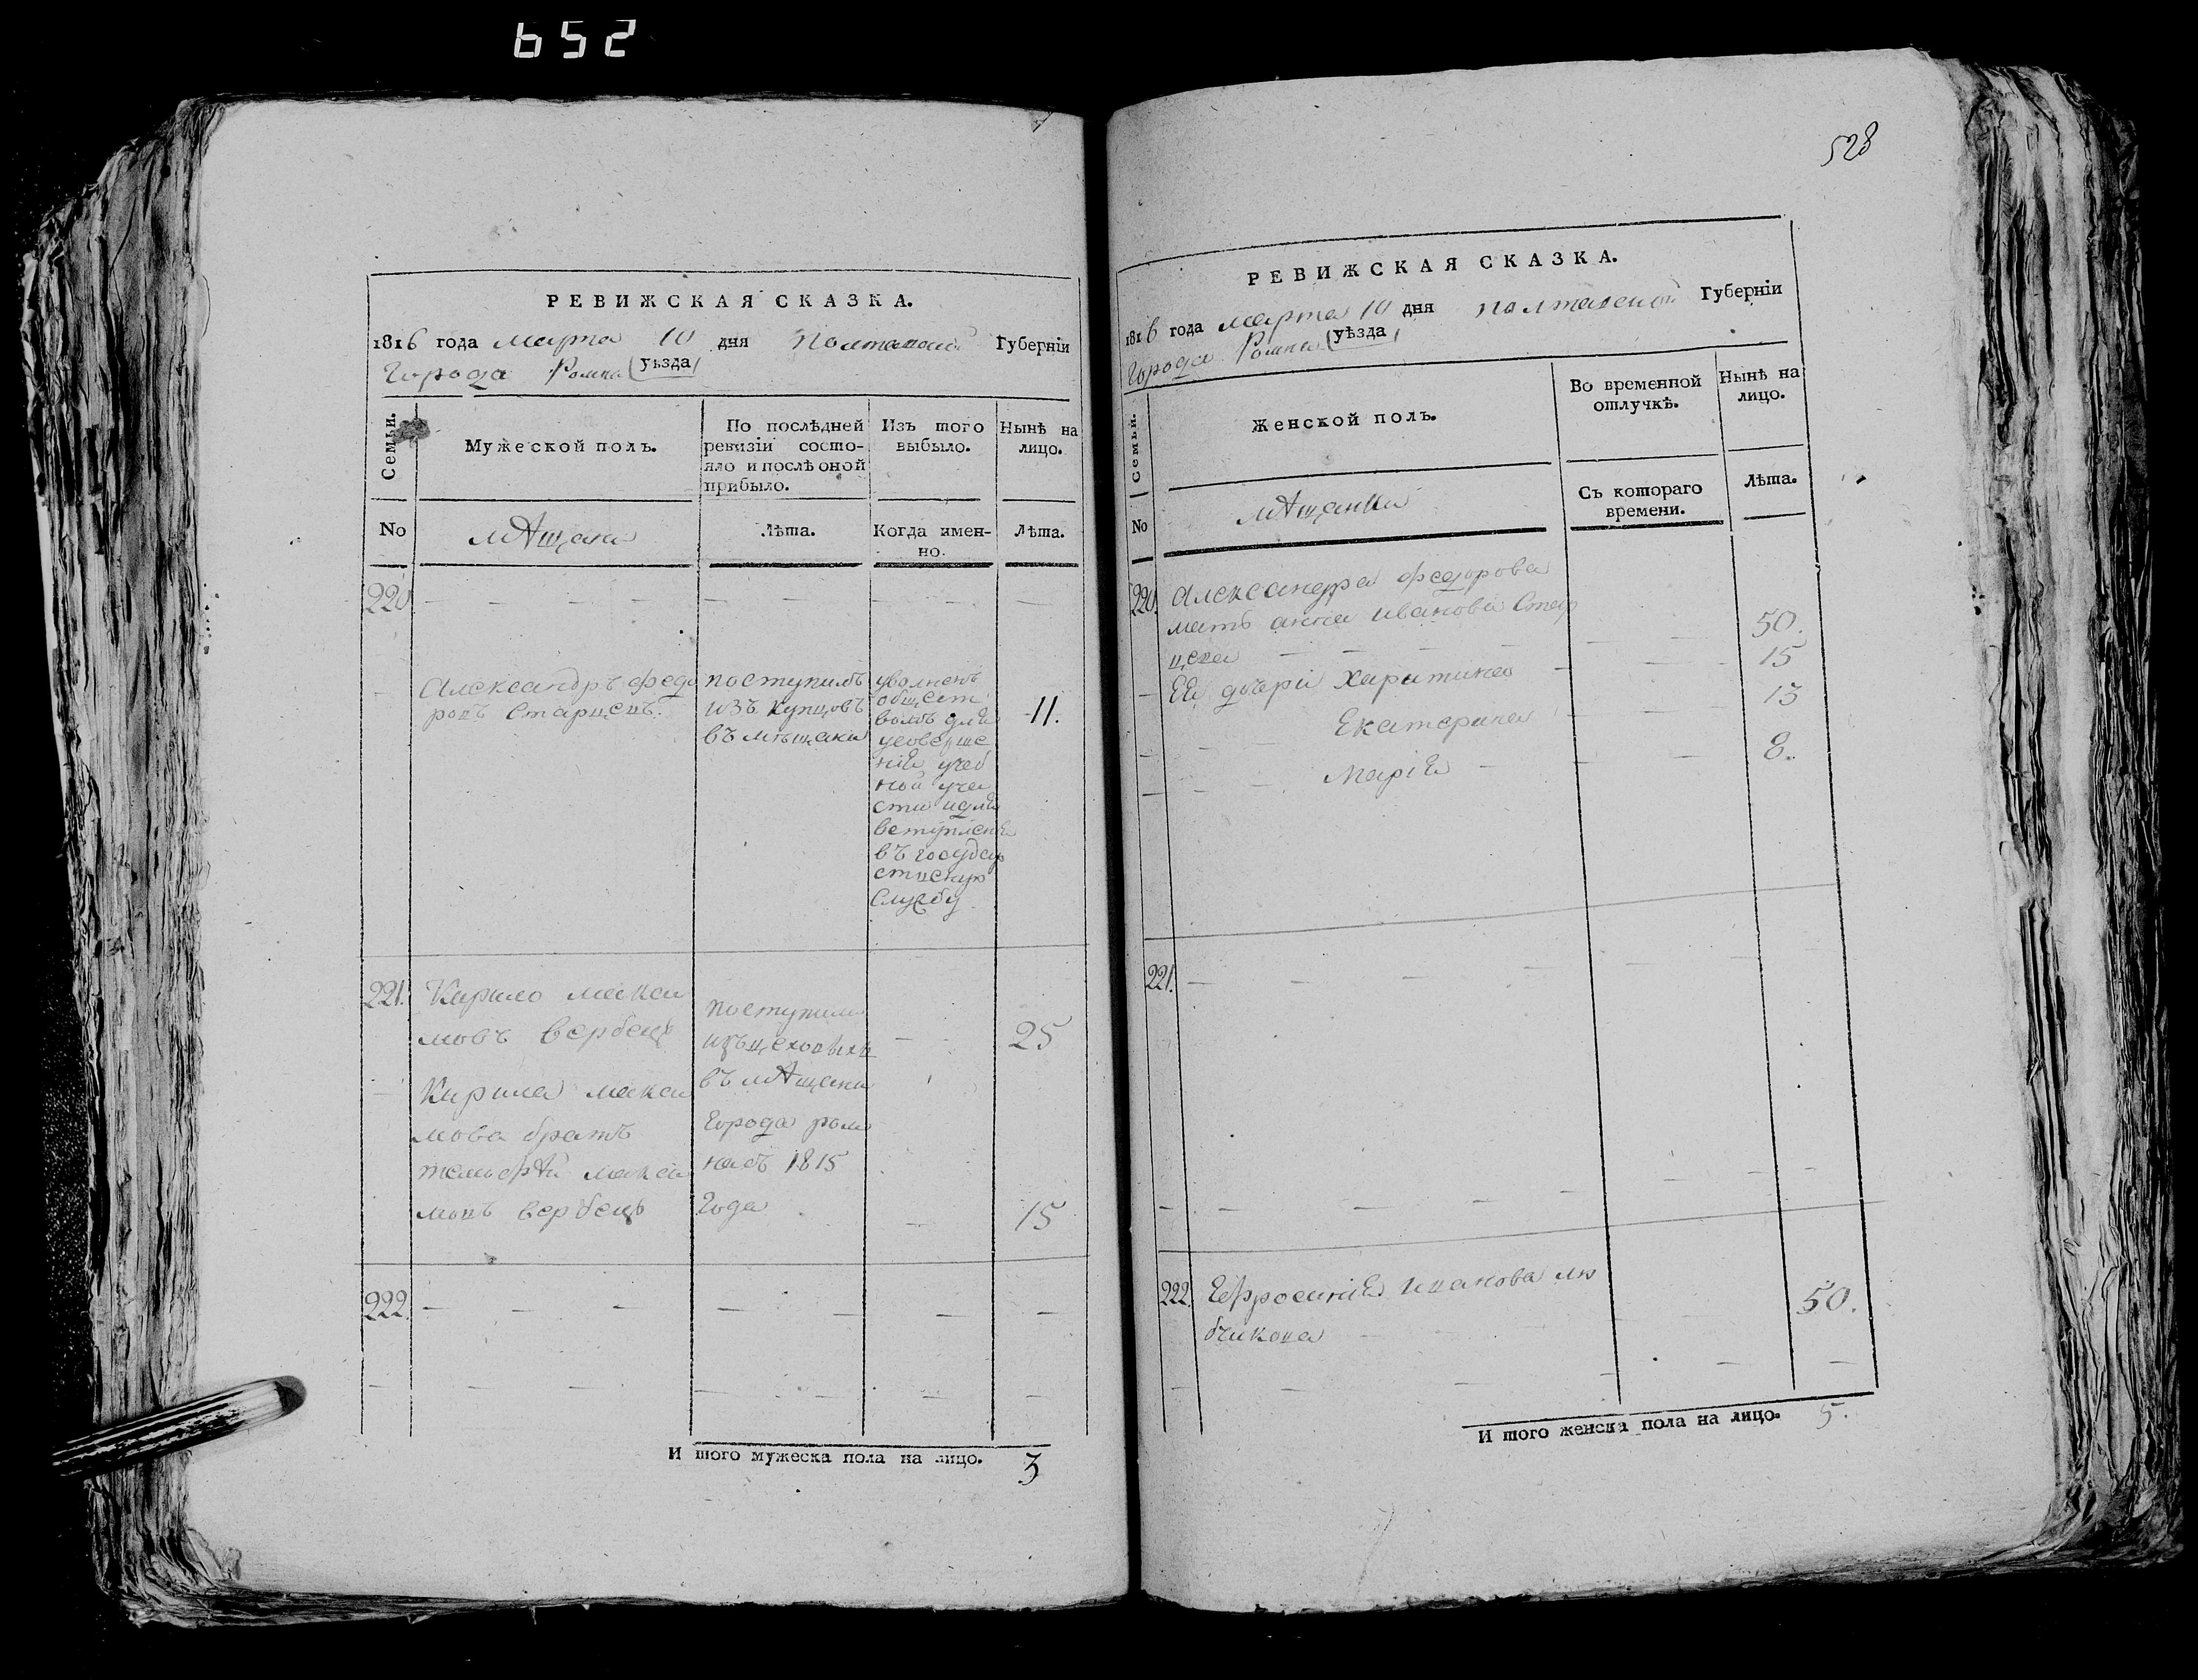 652
РЕВИЖСКАЯ СКАЗКА.
1816 года Марта 10 дня Полтавской Губерніи
Города Ромна (уѣзда)
Семьи.
Мужеской полъ.
По послѣдней ревизіи состо-
яло и послѣ оной
прибыло.
Изъ того
выбыло.
Нынѣ на
лицо.
No
мѣщани
Лѣта.
Когда имен-
но.
Лѣта.
220
Александръ Федо
ровъ Старцевъ
поступилъ
изъ купцовъ
въ мѣщани
уволненъ
общест
вомъ для
усоверше
нія учеб
ной уча
сти и для
вступленія
въ государ
ственную
службу
11.
221.
Кирило макси
мовъ вербецъ
25
Кирила макси
мова братъ
тимофѣй макси
мовъ вербецъ
поступили
изъ цеховыхъ
въ мѣщани
города ром
на съ 1815
года
15
222.
И того мужеска пола на лицо. 3
528
РЕВИЖСКАЯ СКАЗКА.
1816 года Марта 10 дня Полтавской Губерніи
Города Ромна (уѣзда)
Семьи.
Женской полъ.
Во временной
отлучкѣ.
Нынѣ на
лицо.
No
мѣщанки
Съ котораго
времени.
Лѣта.
220.
Александра Федорова
мать анна иванова Стар
цева
50.
Ея дочери Харитина
15
Екатерина
13
Марія
8.
221.
222.
Ефросинія иванова лю
бчикова
50.
И того женска пола на лицо. 5.